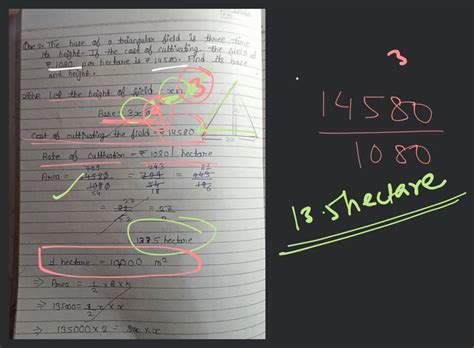 Que 2: The base of a triangular field is three time
its height. If the cost of cultivating the field at
₹ 1080 per hectare is ₹ 14580. Find its base
and height.
Let the height of field x m
Base 3x
Cost of cultivating the field = ₹ 14580
Rate of cultivation = ₹ 1080/hectare
Area =
54
18
= 27
hectare
1 hectare = 10,000 m²
⇒ Area = 1/2 × B × h
⇒ 135000 × 2 = 3x × x
3
14580
1080
13.5 hectare